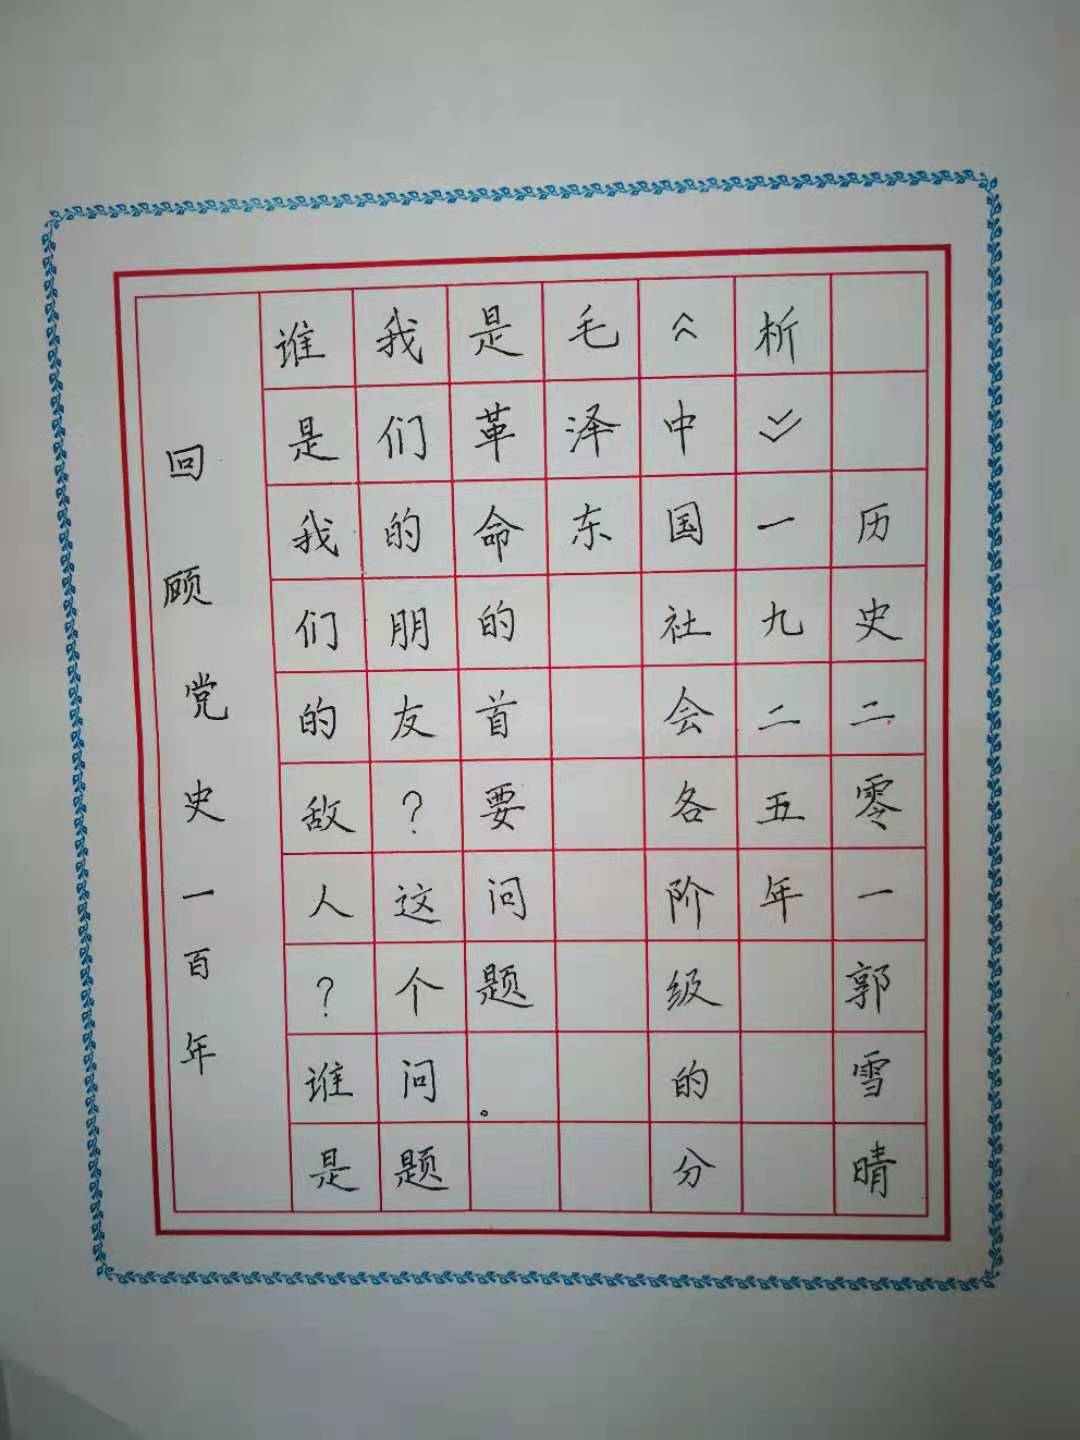 回顾党史一百年
谁是我们的敌人?谁是
我们的朋友?这个问题
是革命的首要问题。
毛泽东
《中国社会各阶级的分
析》一九二五年
历史二零一郭雪晴